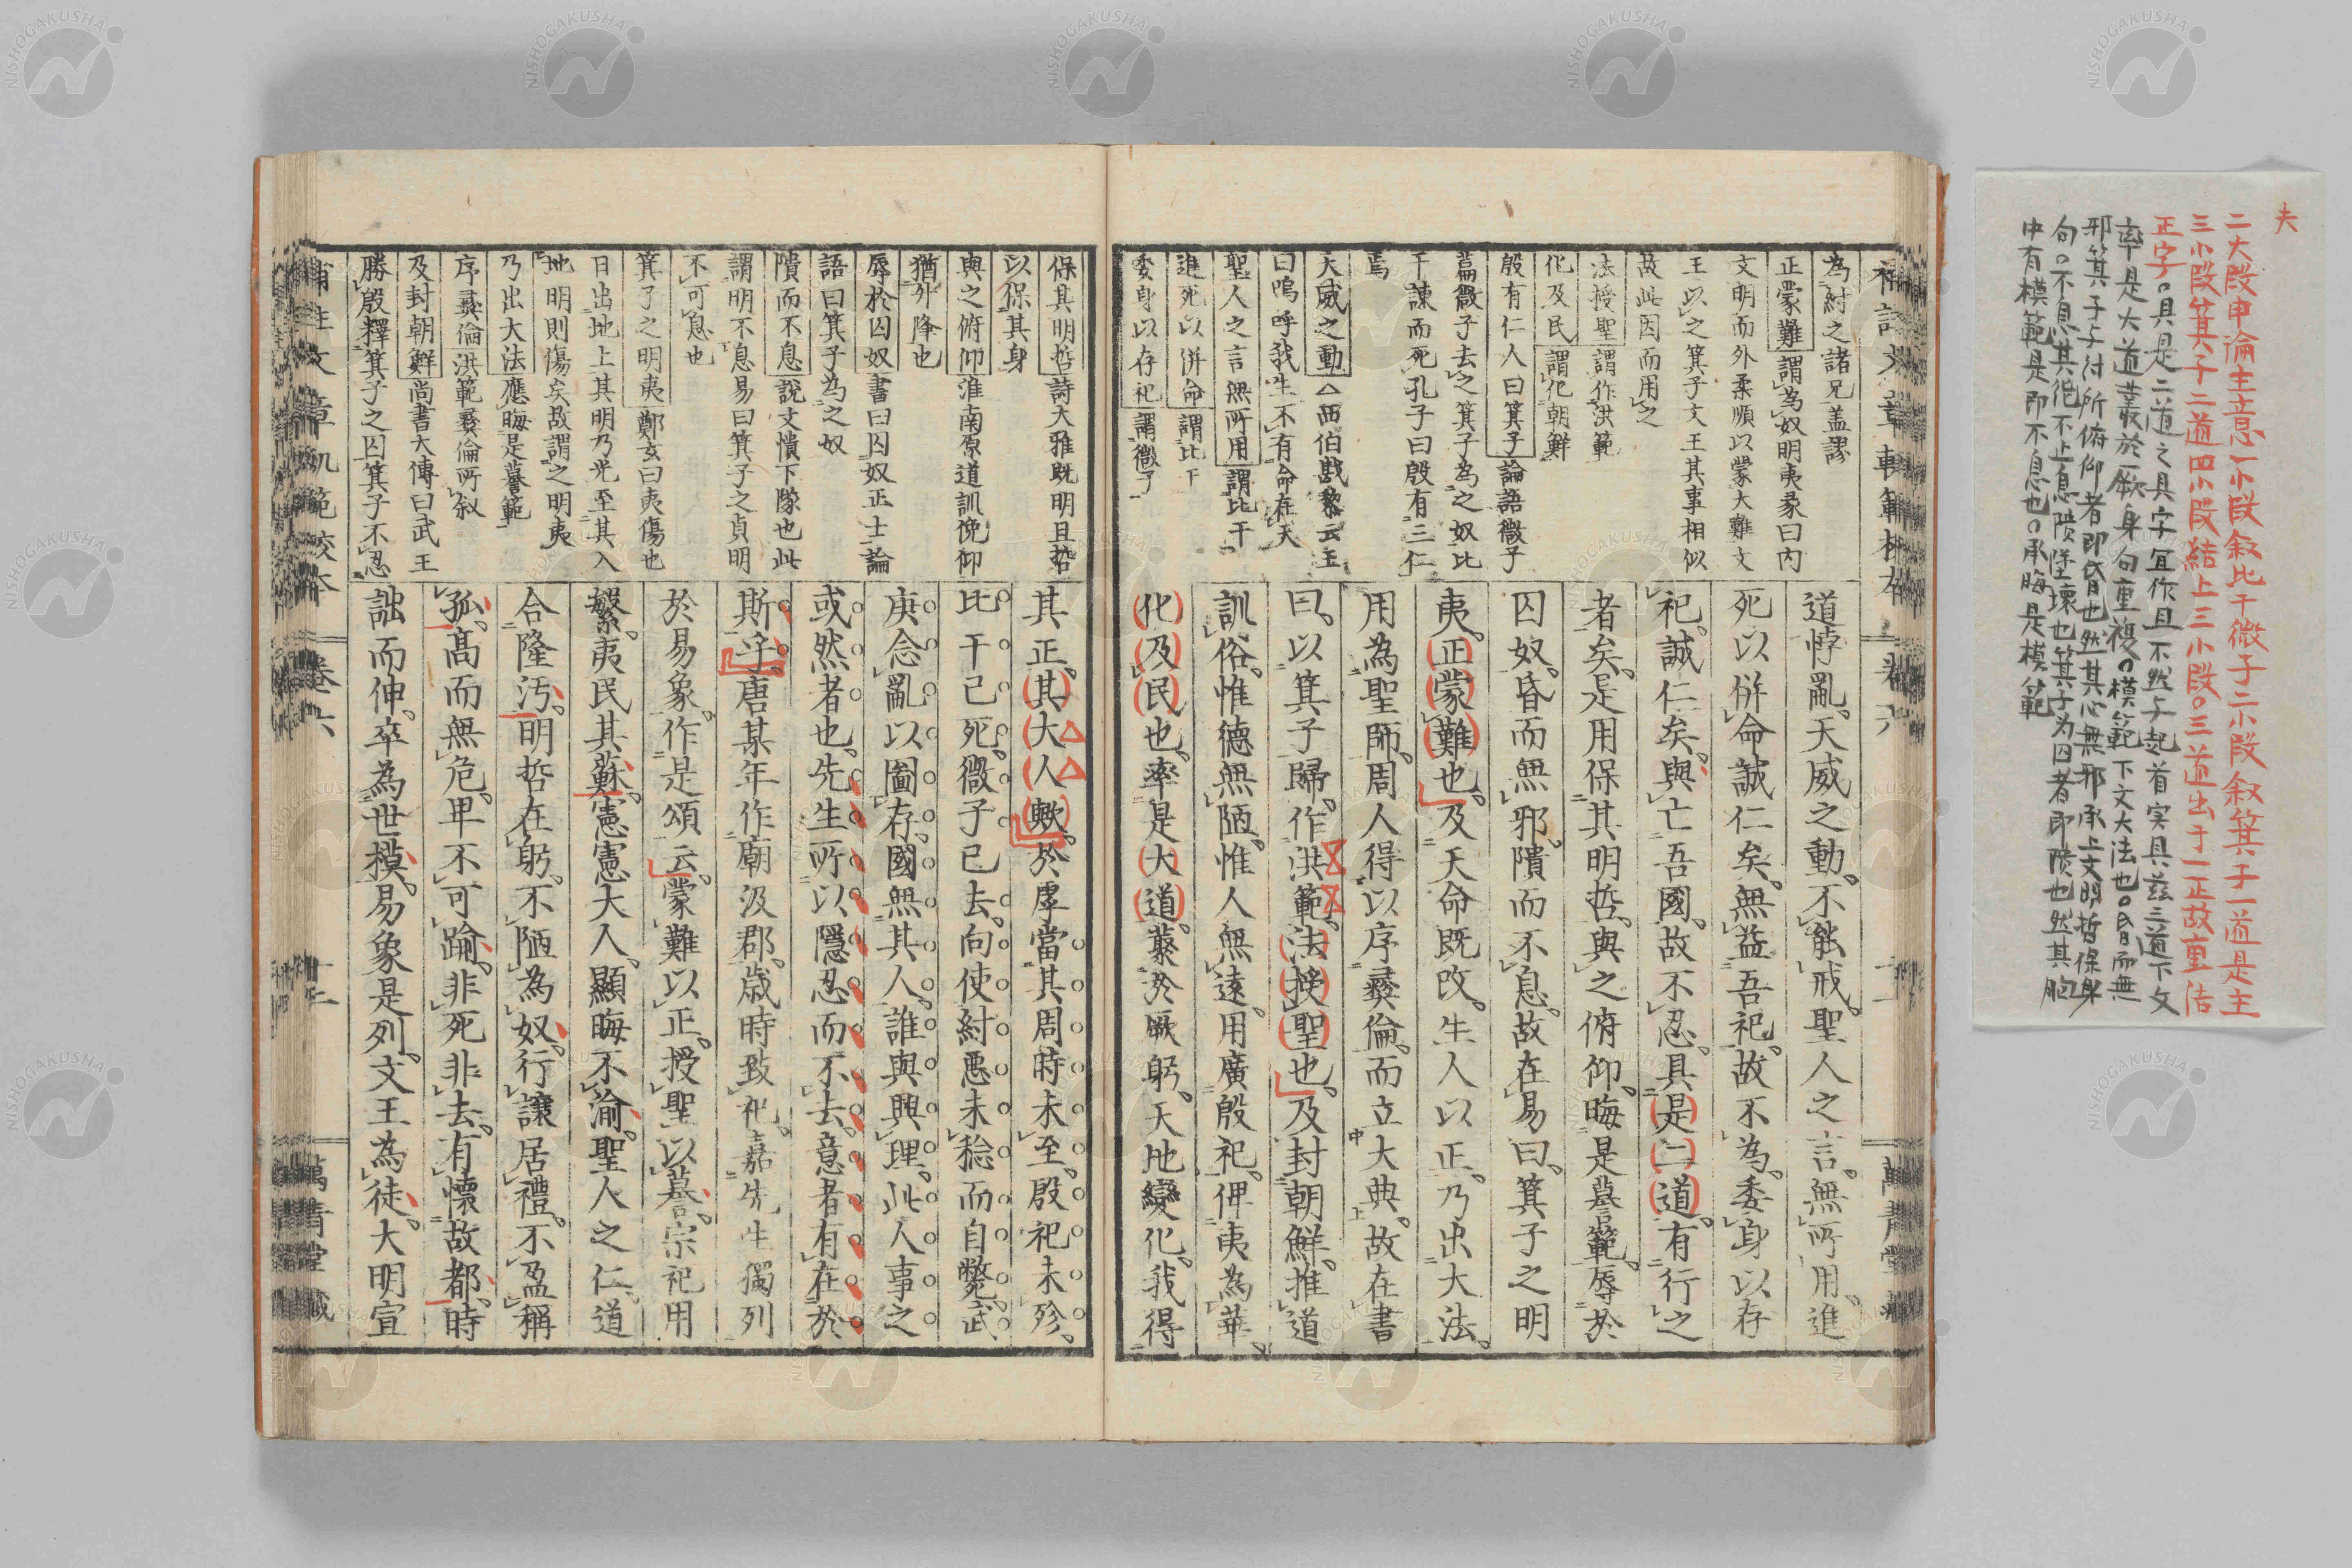 夫
二大段申論主意一小段叙比干微子二小段叙箕子一道是主
三小段箕子二道四小段結上三小段。三道出于一正故重結
正字。具是二道之具字宜作且不然与起首実具茲三道下文
率是大道藂於厥身句重複。模範下文大法也。昏而無
邪箕子与付所俯仰者即昏也然其心無邪承上文明哲保身
句。不息其化不止息隤墜壊也箕子为囚者即隤也然其胸
中有模範是即不息也。承晦是模範
為紂之諸兄蓋謬
正蒙難謂為奴明夷彖曰内
文明而外柔順以蒙大難文
王以之箕子文王其事相似
故此因而用之
法授聖謂作洪範
化及民謂化朝鮮
殷有仁人曰箕子論語微子
篇微子去之箕子為之奴比
干諫而死孔子曰殷有三仁
焉
天威之動△西伯戡黎云王
曰嗚呼我生不有命在天
聖人之言無所用謂比干
進死以併命謂比干
委身以存祀謂微子
道悖亂、天威之動、不能戒、聖人之言、無所用、進
死以併命、誠仁矣、無益吾祀、故不為、委身以存
祀、誠仁矣、與亡吾國、故不忍、具是二道、有行之
者矣、是用保其明哲、與之俯仰、晦是謩範、辱於
囚奴、昏而無邪、隤而不息、故在易曰、箕子之明
夷、正蒙難也、及天命既改、生人以正、乃出大法、
用為聖師、周人得以序彝倫、而立大典、故在書
曰、以箕子歸、作洪範、法授聖也、及封朝鮮、推道
訓俗、惟德無陋、惟人無遠、用廣殷祀、俾夷為華、
化及民也、率是大道、藂於厥躬、天地變化、我得
保其明哲詩大雅既明且哲
以保其身
與之俯仰淮南原道訓俛仰
猶升降也
辱於囚奴書曰囚奴正士論
語曰箕子為之奴
隤而不息說文憒下隊也此
謂明不息易曰箕子之貞明
不可息也
箕子之明夷鄭玄曰夷傷也
日出地上其明乃光至其入
地明則傷矣故謂之明夷
乃出大法應晦是謩範
序彝倫洪範彝倫所叙
及封朝鮮尚書大傳曰武王
勝殷釋箕子之囚箕子不忍
其正、其大人歟、於虖當其周時未至、殷祀未殄、
比干已死、微子已去、向使紂惡未稔而自斃、武
庚念亂以圖存、國無其人、誰與興理、此人事之
或然者也、先生所以隱忍而不去、意者有在於
斯乎、唐某年、作廟汲郡、歲時致祀、嘉先生獨列
於易象、作是頌云、蒙難以正、授聖以謩、宗祀用
繁、夷民其蘇、憲憲大人、顯晦不渝、聖人之仁、道
合隆汚、明哲在躬、不陋為奴、行讓居禮、不盈稱
孤、高而無危、卑不可踰、非死非去、有懷故都、時
詘而伸、卒為世模、易象是列、文王為徒、大明宣
補註文章軌範校本
卷六
十二
萬青堂藏